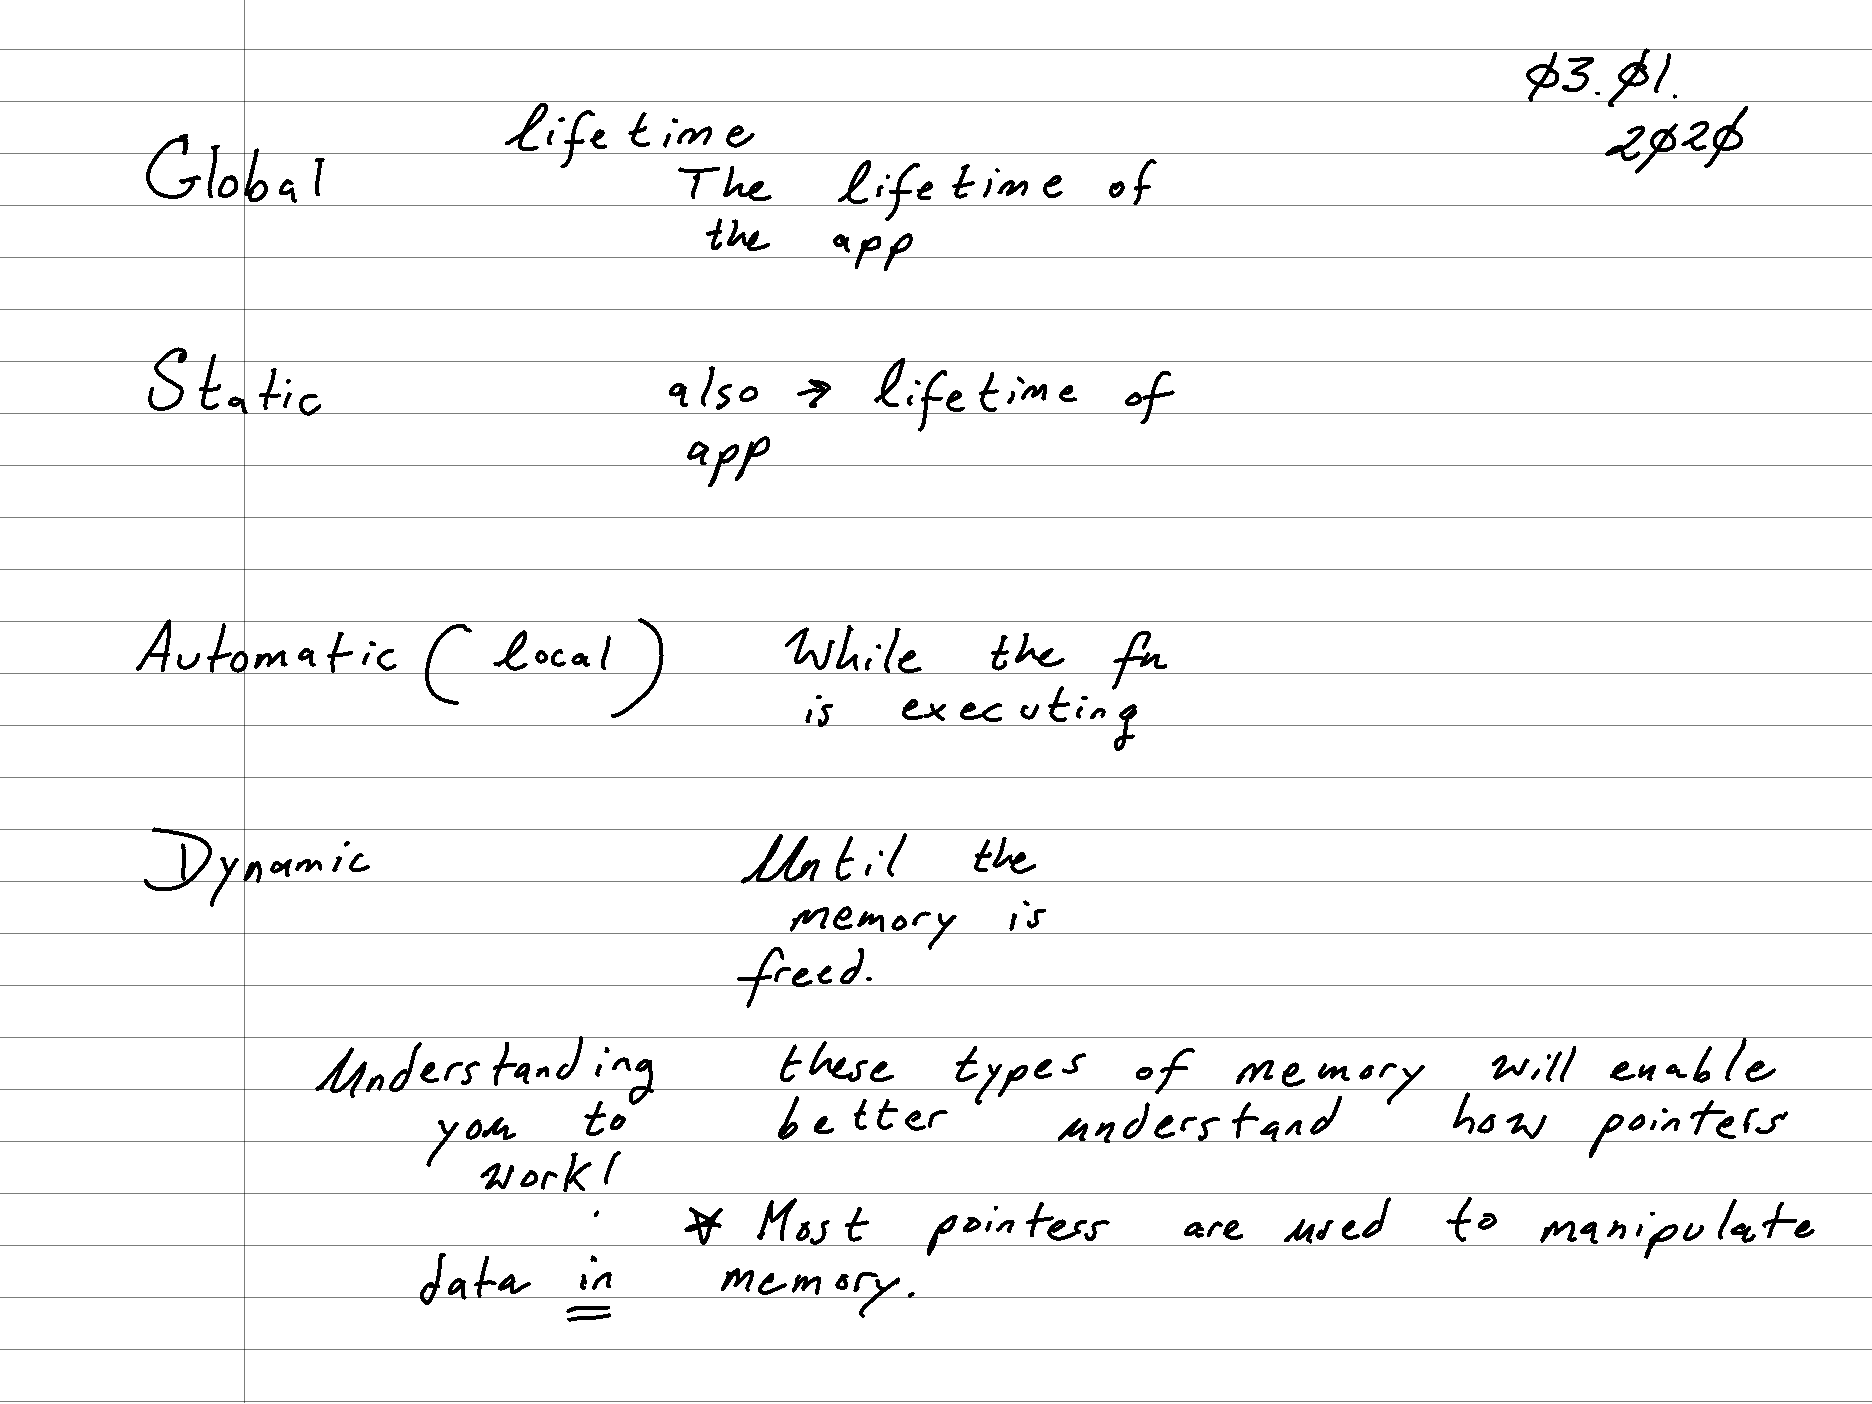 03.01.
2020
lifetime
Global The lifetime of
the app
Static also → lifetime of
app
Automatic (local) While the fn
is executing
Dynamic Until the
memory is
freed.
Understanding these types of memory will enable
you to better understand how pointers
work!
* Most pointers are used to manipulate
data in memory.